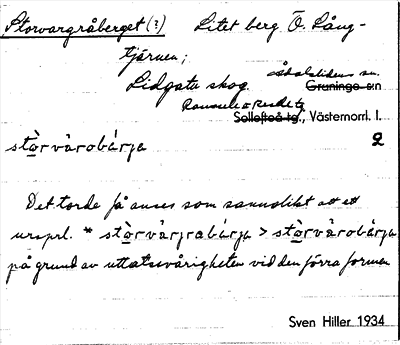 Storvargråberget (?) Litet berg Ö. Lång-
tjärnen;
Lidgatu skog. Ådalslidens sn.
Graninge s:n
Ramsele o Resele tg
Sollefteå tg., Västernorrl. l.
stò̱rvàrobárja 2
Det torde få anses som sannolikt att ett
ursprl. * stò̱rvàrjrabárja > stò̱rvàrobárja
på grund av uttalssvårigheten vid den förra formen
Sven Hiller 1934